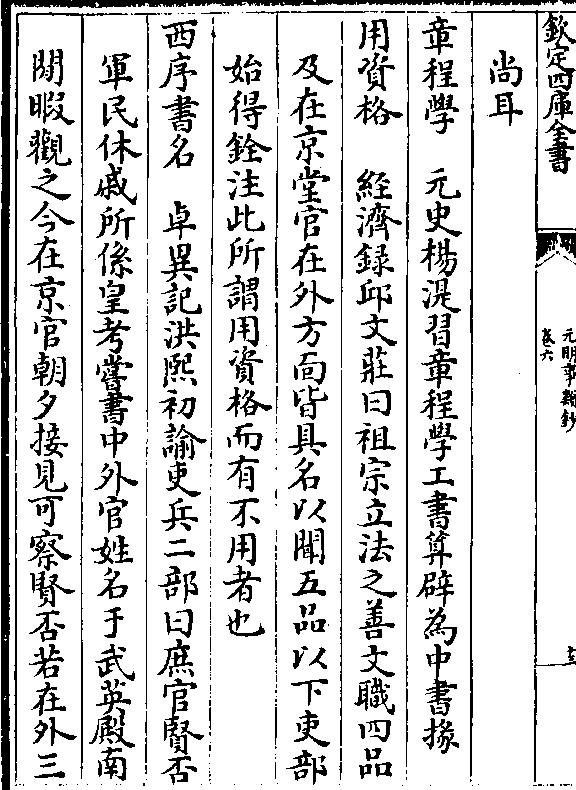 欽定四庫全書
元明事類鈔
卷六
尚耳
章程學 元史楊湜習章程學工書算辟為中書掾
用資格 經濟録邱文莊曰祖宗立法之善文職四品
及在京堂官在外方面皆具名以聞五品以下吏部
始得銓注此所謂用資格而有不用者也
西序書名 卓異記洪熙初諭吏兵二部曰庶官賢否
軍民休戚所係皇考嘗書中外官姓名于武英殿南
間暇觀之今在京官朝夕接見可察賢否若在外三